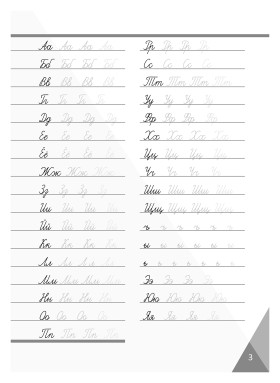 Аа Аа Аа Аа
Бб Бб Бб Бб
Вв Вв Вв Вв
Гг Гг Гг Гг
Дд Дд Дд Дд
Ее Ее Ее Ее
Ёё Ёё Ёё Ёё
Жж Жж Жж
Зз Зз Зз Зз
Ии Ии Ии Ии
Йй Йй Йй Йй
Кк Кк Кк Кк
Лл Лл Лл Лл
Мм Мм Мм Мм
Нн Нн Нн Нн
Оо Оо Оо Оо
Пп Пп Пп Пп
Рр Рр Рр Рр
Сс Сс Сс Сс
Тт Тт Тт Тт
Уу Уу Уу Уу
Фф Фф Фф Фф
Хх Хх Хх Хх
Цц Цц Цц Цц
Чч Чч Чч Чч
Шш Шш Шш Шш
Щщ Щщ Щщ Щщ
ъ ъ ъ ъ ъ ъ
ы ы ы ы ы ы
ь ь ь ь ь ь
Ээ Ээ Ээ Ээ
Юю Юю Юю Юю
Яя Яя Яя Яя
3